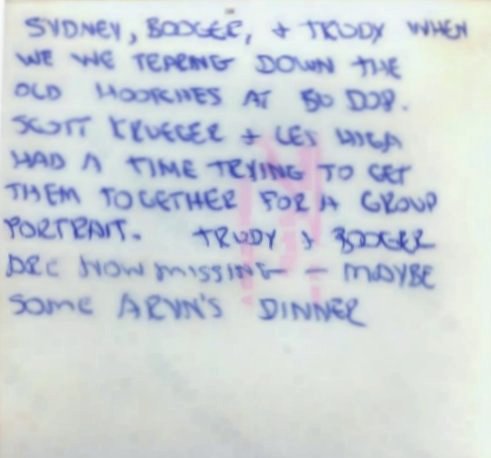 SYDNEY, BOOGER, + TRUDY WHEN
WE WE TEARING DOWN THE
OLD HOOTCHES AT BO DOP.
SCOTT KRUEGER + LES HIGA
HAD A TIME TRYING TO GET
THEM TOGETHER FOR A GROUP
PORTRAIT. TRUDY & BOOGER
ARE NOW MISSING — MAYBE
SOME ARVN'S DINNER